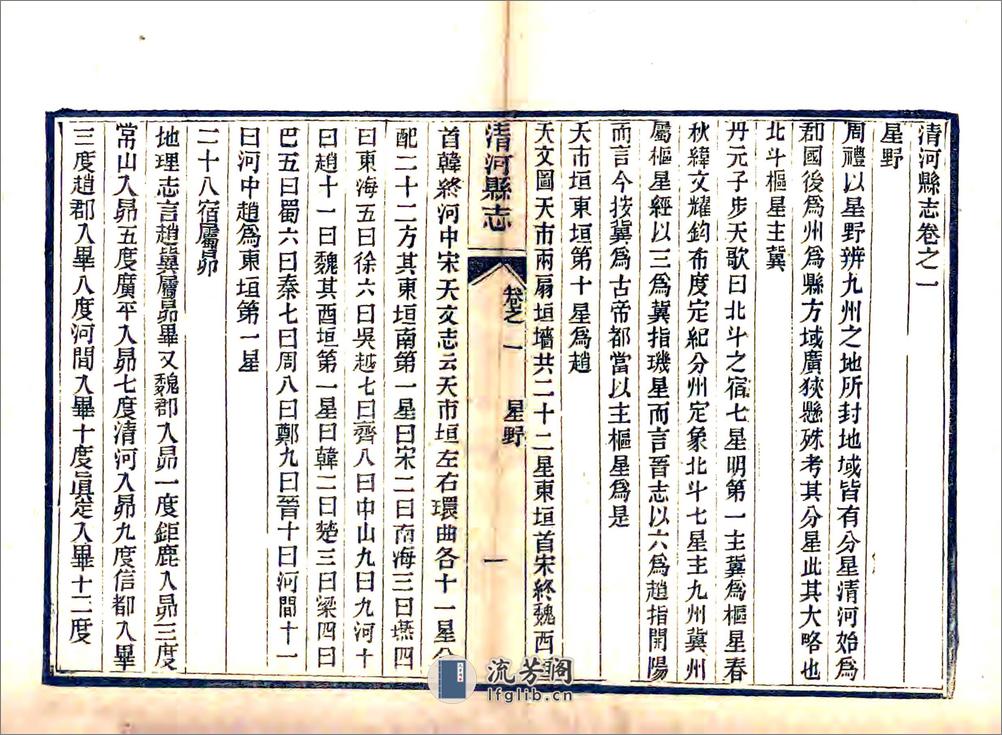 清河縣志卷之一
星野
周禮以星野辨九州之地所封地域皆有分星清河始為
郡國後為州為縣方域廣狹懸殊考其分星此其大略也
北斗樞星主冀
丹元子步天歌曰北斗之宿七星明第一主冀為樞星春
秋緯文耀鈞布度定紀分州定象北斗七星主九州冀州
屬樞星經以三為冀指璣星而言晉志以六為趙指開陽
而言今按冀為古帝都當以主樞星為是
天市垣東垣第十星為趙
天文圖天市兩扇垣墻共二十二星東垣首宋終魏西
清河縣志
卷之一
星野
一
首韓終河中宋天文志云天市垣左右環曲各十一星分
配二十二方其東垣南第一星曰宋二曰南海三曰燕四
曰東海五曰徐六曰吳越七曰齊八曰中山九曰九河十
曰趙十一曰魏其酉垣第一星曰韓二曰楚三曰梁四曰
巴五曰蜀六曰秦七曰周八曰鄭九曰晉十曰河間十一
曰河中趙為東垣第一星
二十八宿屬昴
地理志言趙冀屬昴畢又魏郡入昴一度鉅鹿入昴三度
常山入昴五度廣平入昴七度清河入昴九度信都入畢
三度趙郡入畢八度河間入畢十度眞定入畢十二度
流芳閣
lfglib.cn